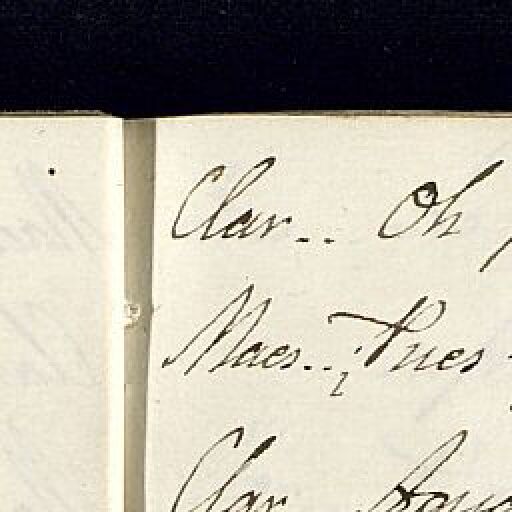 Clar.. Oh
Maes..¿Pues
Clar